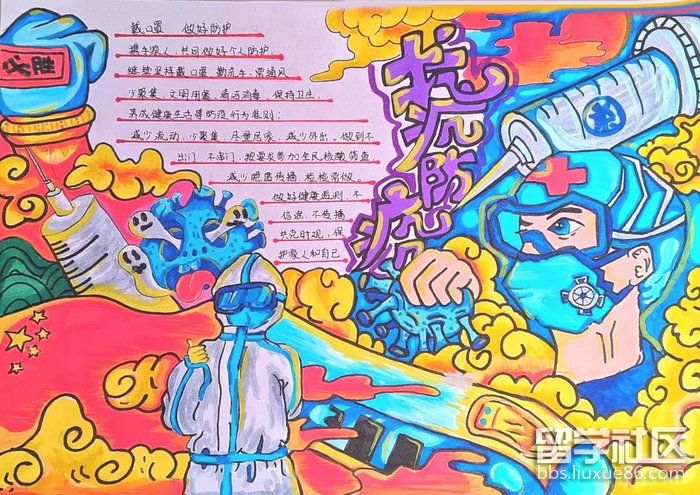 戴口罩 做好防护
携手家人,共同做好个人防护
继续坚持戴口罩 勤洗手、常通风
少聚集、文明用餐、清洁消毒、保持卫生,
养成健康生活等防疫行为准则;
减少流动、少聚集、尽量居家、减少外出。做到不
出门、不串门、按要求参加全民核酸筛查
减少病毒传播,应检尽做。
做好健康监测,不
信谣,不传播
共克时艰,保
护家人和自己
抗疫防疫
必胜
留学社区
bbs.liuxue86.com